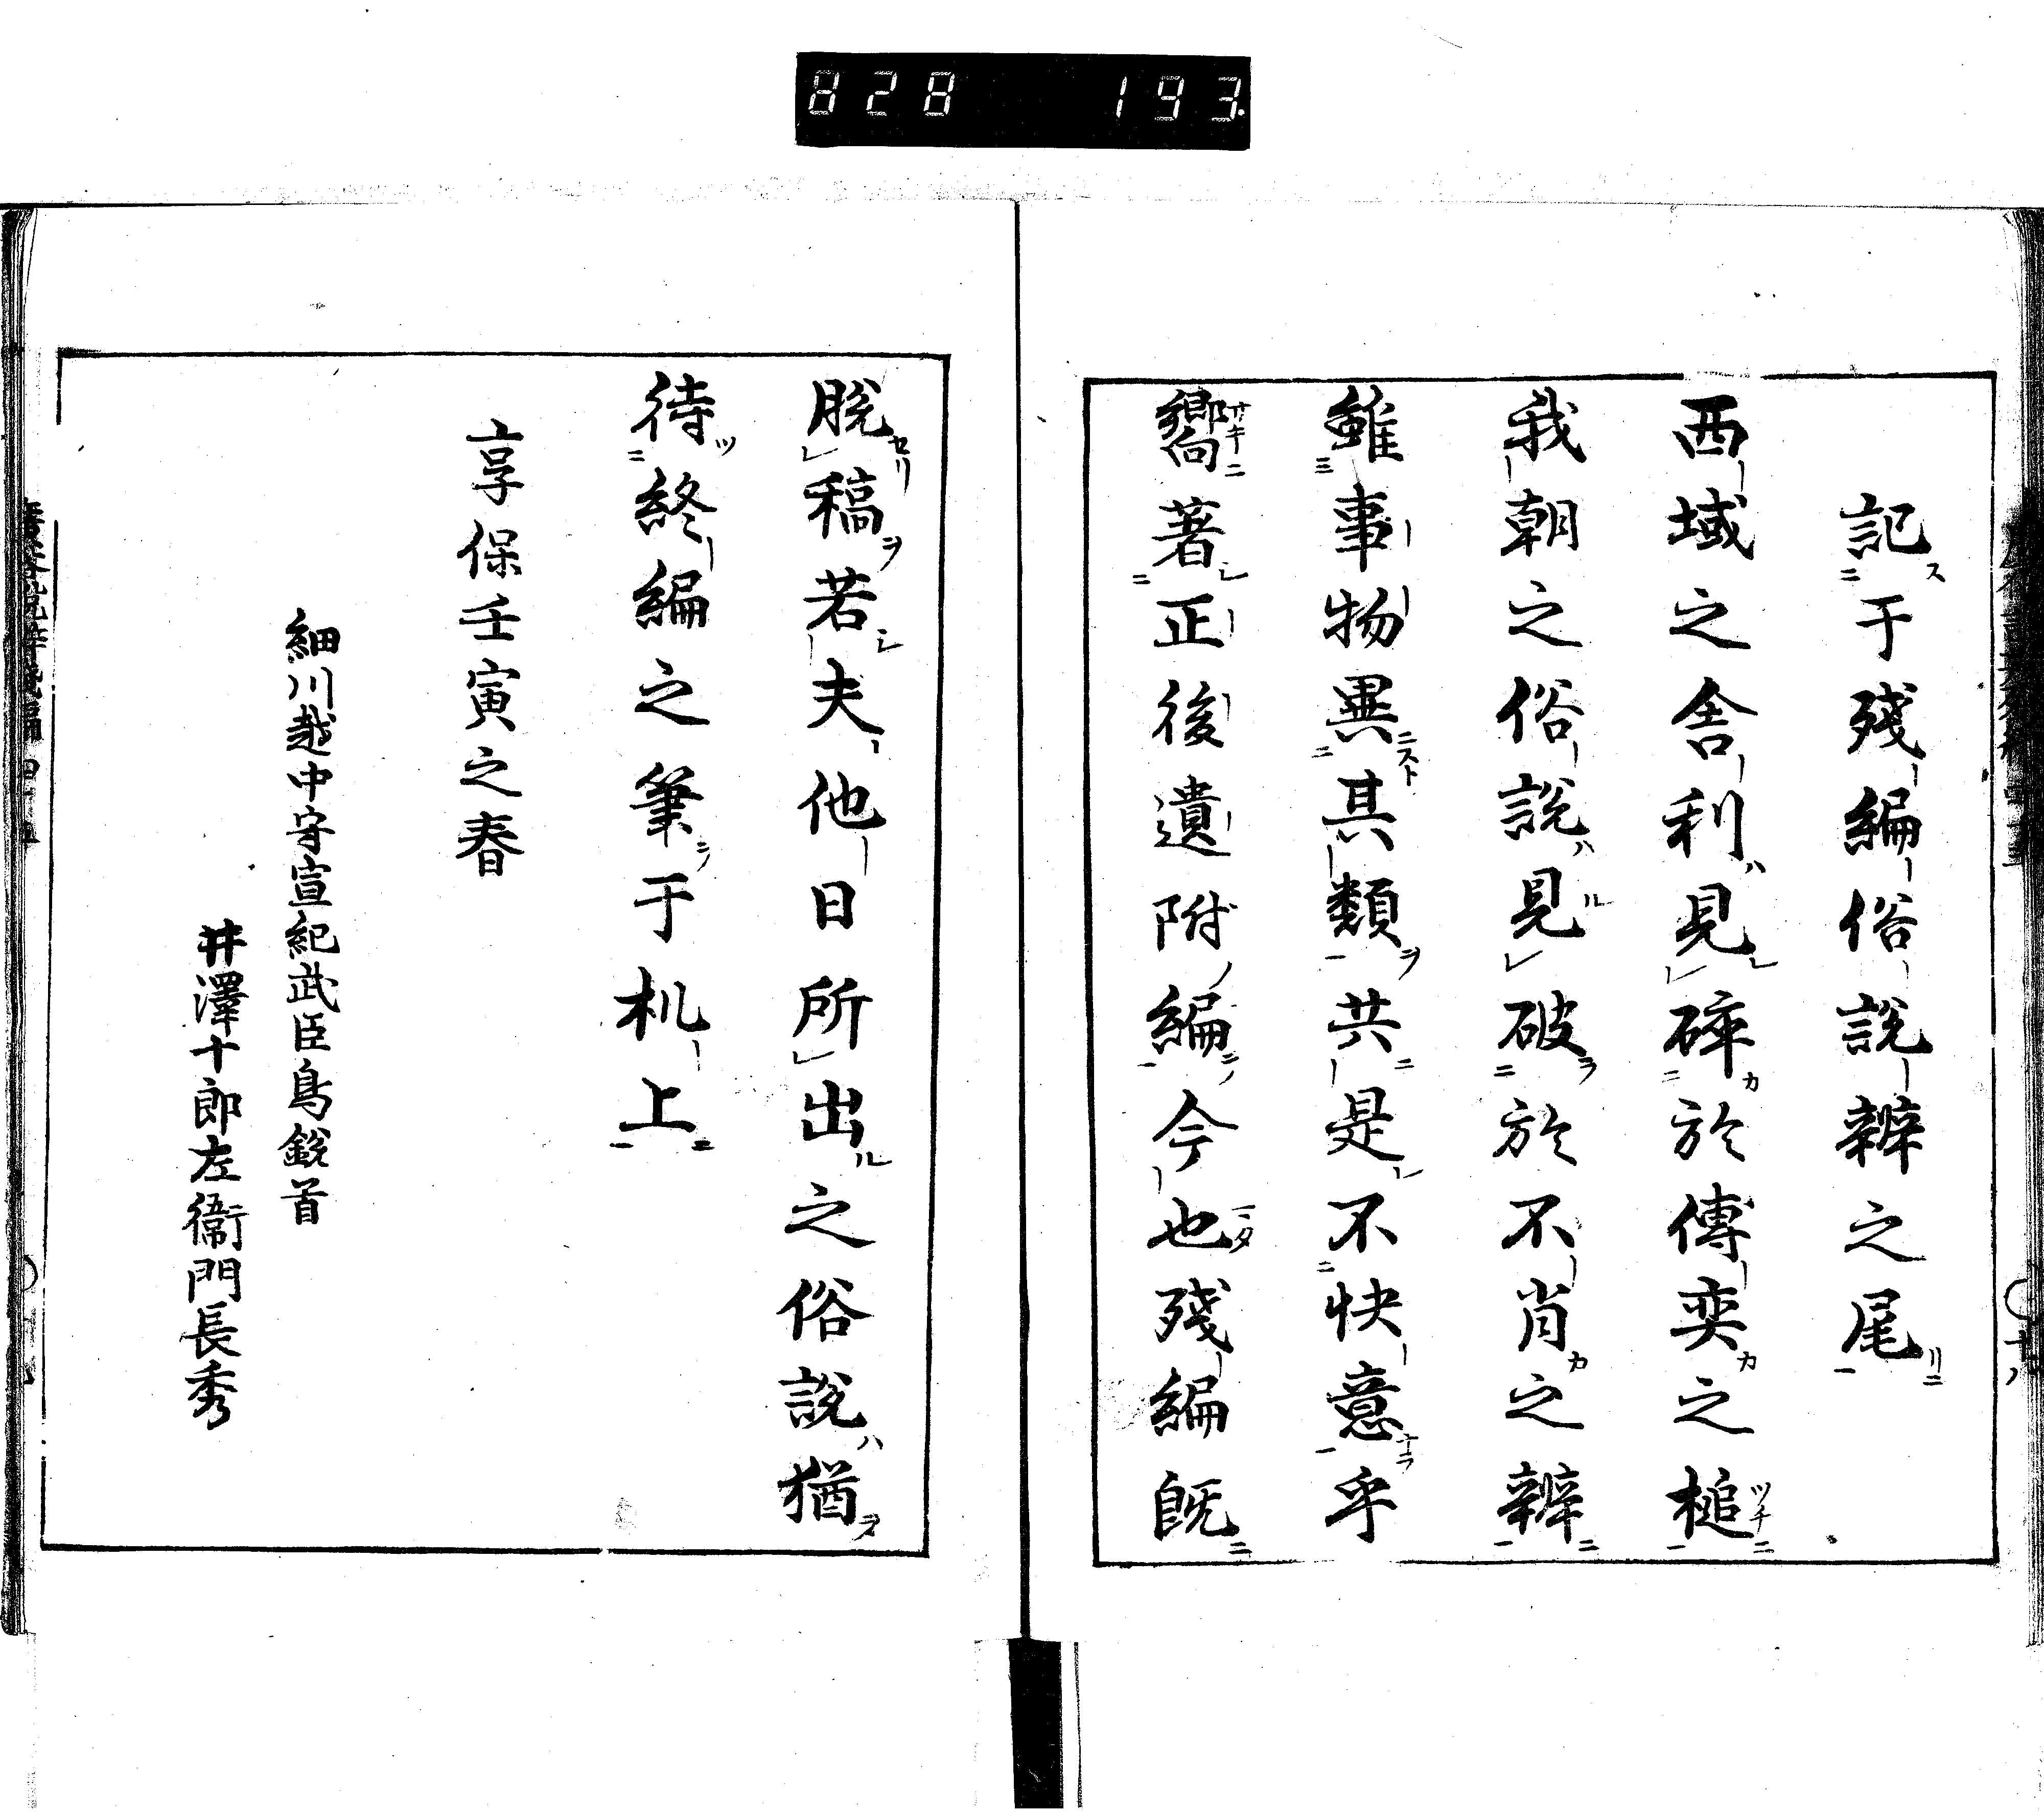 828 193
記于殘編俗說辨之尾
西域之舎利見碎於傅奕之槌
我朝之俗說見破於不肖之辨
雖事物異其類共是不快意乎
嚮著正後遺附編今也殘編既
脫稿若夫他日所出之俗說猶
待終編之筆于机上
享保壬寅之春
細川越中守宣紀武臣鳥銃首
井澤十郎左衞門長秀